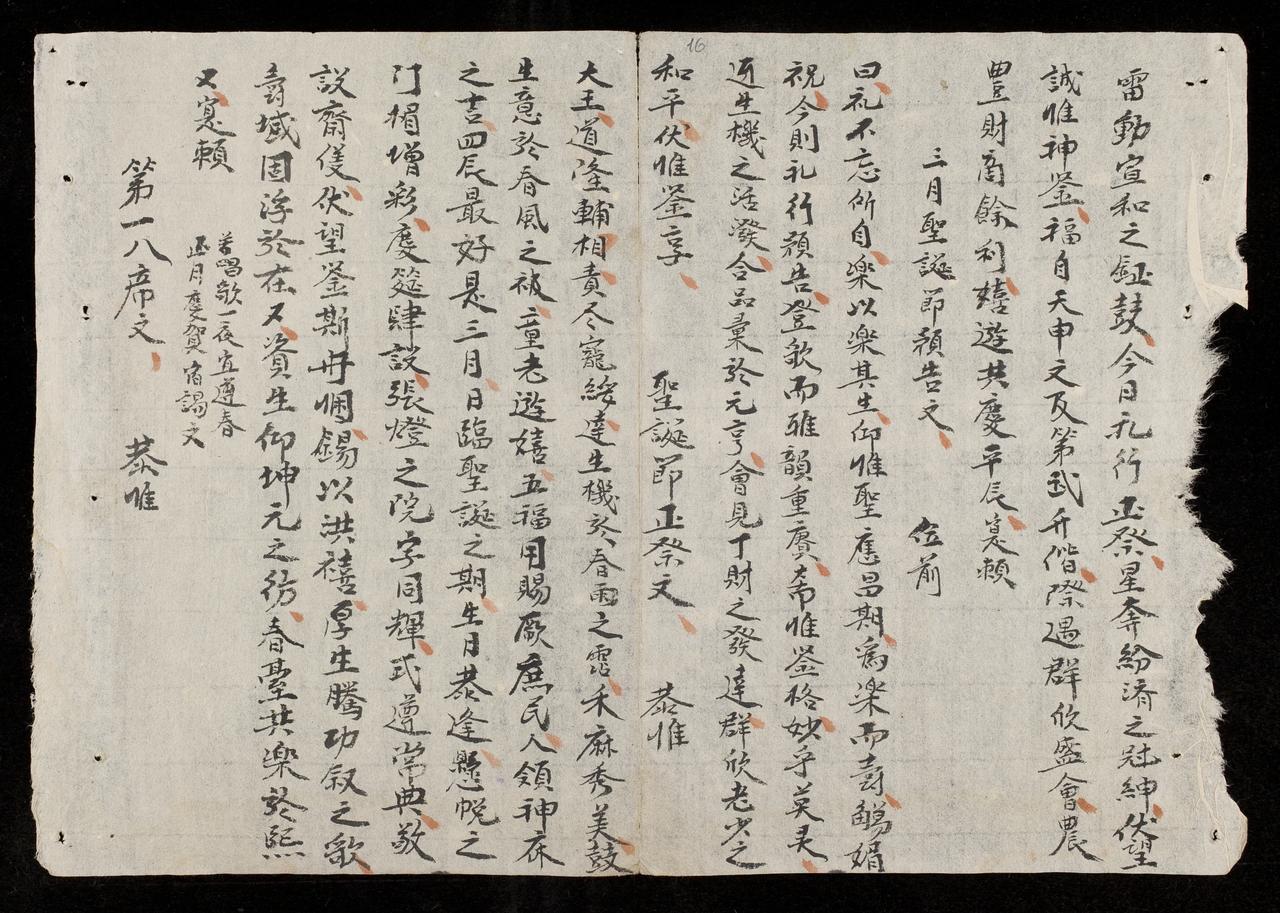 16
雷動宣和之鉦鼓今日礼行正祭星奔紛濟之冠紳伏望
誠惟神鉴福自天申文及第武升偕際遇群欣盛會農
豐財商餘利嬉遊共慶平辰寔賴
三月聖誕節預告文 位前
曰礼不忘所自楽以楽其生仰惟聖應昌期為楽而壽觴娟
祝今則礼行預告登歌而雅韻重賡惟鉴格妙乎英灵
迓生機之活潑合品彙於元亨會見丁財之發達群欣老少之
和平伏惟鉴享 聖誕節正祭文 恭惟
大王道隆輔相責尽寵綏達生機於春雨之霑禾麻秀美鼓
生意於春風之被童老遊嬉五福用賜厥庶民人領神庥
之吉四辰最好是三月日臨聖誕之期生月恭逢懸帨之
門楣增彩慶筵肆設張燈之院宇同輝式遵常典敬
說齋僅伏望鉴斯丹悃錫以洪禧厚生騰功叙之歌
壽域固浮於在又資生仰坤元之彷春臺共楽於熙
又寔賴 若唱歌一夜宜遵春
正月慶賀宿謁文
第一八席文 恭惟